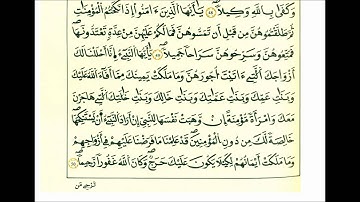 وَكَفَىٰ بِاللَّهِ وَكِيلًا ۝٤٨ يَا أَيُّهَا الَّذِينَ ءَامَنُوا إِذَا نَكَحْتُمُ الْمُؤْمِنَاتِ
ثُمَّ طَلَّقْتُمُوهُنَّ مِن قَبْلِ أَن تَمَسُّوهُنَّ فَمَا لَكُمْ عَلَيْهِنَّ مِنْ عِدَّةٍ تَعْتَدُّونَهَا
فَمَتِّعُوهُنَّ وَسَرِّحُوهُنَّ سَرَاحًا جَمِيلًا ۝٤٩ يَا أَيُّهَا النَّبِيُّ إِنَّا أَحْلَلْنَا لَكَ
أَزْوَاجَكَ الَّتِي ءَاتَيْتَ أُجُورَهُنَّ وَمَا مَلَكَتْ يَمِينُكَ مِمَّا أَفَاءَ اللَّهُ عَلَيْكَ
وَبَنَاتِ عَمِّكَ وَبَنَاتِ عَمَّاتِكَ وَبَنَاتِ خَالِكَ وَبَنَاتِ خَالَاتِكَ الَّتِي هَاجَرْنَ
مَعَكَ وَامْرَأَةً مُؤْمِنَةً إِن وَهَبَتْ نَفْسَهَا لِلنَّبِيِّ إِنْ أَرَادَ النَّبِيُّ أَن يَسْتَنكِحَهَا
خَالِصَةً لَّكَ مِن دُونِ الْمُؤْمِنِينَ قَدْ عَلِمْنَا مَا فَرَضْنَا عَلَيْهِمْ فِي أَزْوَاجِهِمْ
وَمَا مَلَكَتْ أَيْمَانُهُمْ لِكَيْلَا يَكُونَ عَلَيْكَ حَرَجٌ وَكَانَ اللَّهُ غَفُورًا رَّحِيمًا ۝٥٠